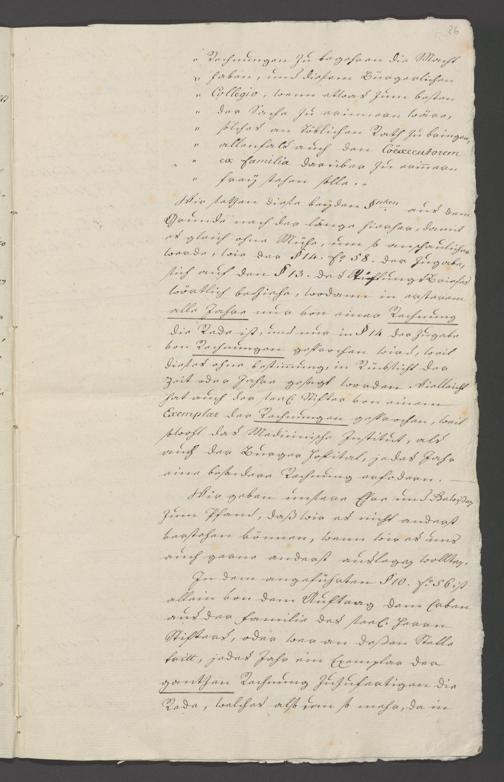 26
" Rechnungen zu begehren die Macht
" haben, und diesem Bürgerlichen
" Collegio, wenn etwas zum besten
" der Sache zu erinnern wäre,
" solches an Löblichen Rath zu bringen,
" allenfals auch den Coëxecutorem
" ex familia darüber zu erinnern
" frey stehen solle. "
Wir setzen diese beyden §phen aus dem
Grunde nach der länge hierher, damit
es gleich ohne Mühe, um so anschaulicher
werde, wie der §14. S. 58. der Zugabe,
sich auf den §13. des Stiftungs Briefes
wörtlich beziehe, wo dann in ersterem
alle Jahre nur von einer Rechnung
die Rede ist, und nur in §14 der Zugabe
von Rechnungen gesprochen wird, weil
dieses ohne bestimmung, in Rücksicht der
Zeit oder Jahre gesagt worden. Vielleicht
hat auch der seel. Stifter von einem
Exemplar der Rechnungen gesprochen, weil
sowohl das Medicinische Institut, als
auch der Burger Hospital, jedes Jahr
eine besondere Rechnung erfodern.
Wir geben unsere Ehre und
zum Pfand, daß wir es nicht anderst
verstehen können, wenn wir es uns
auch gerne anderst auslegen wollten.
In dem angeführten §10. S. 56. ist
allein von dem Auftrag dem Erben
aus der Familie des seel. Herrn
Stifters, oder wer an dessen Stelle
tritt, jedes Jahr ein Exemplar der
gantzen Rechnung zuzufertigen die
Rede, welches also um so mehr, da in